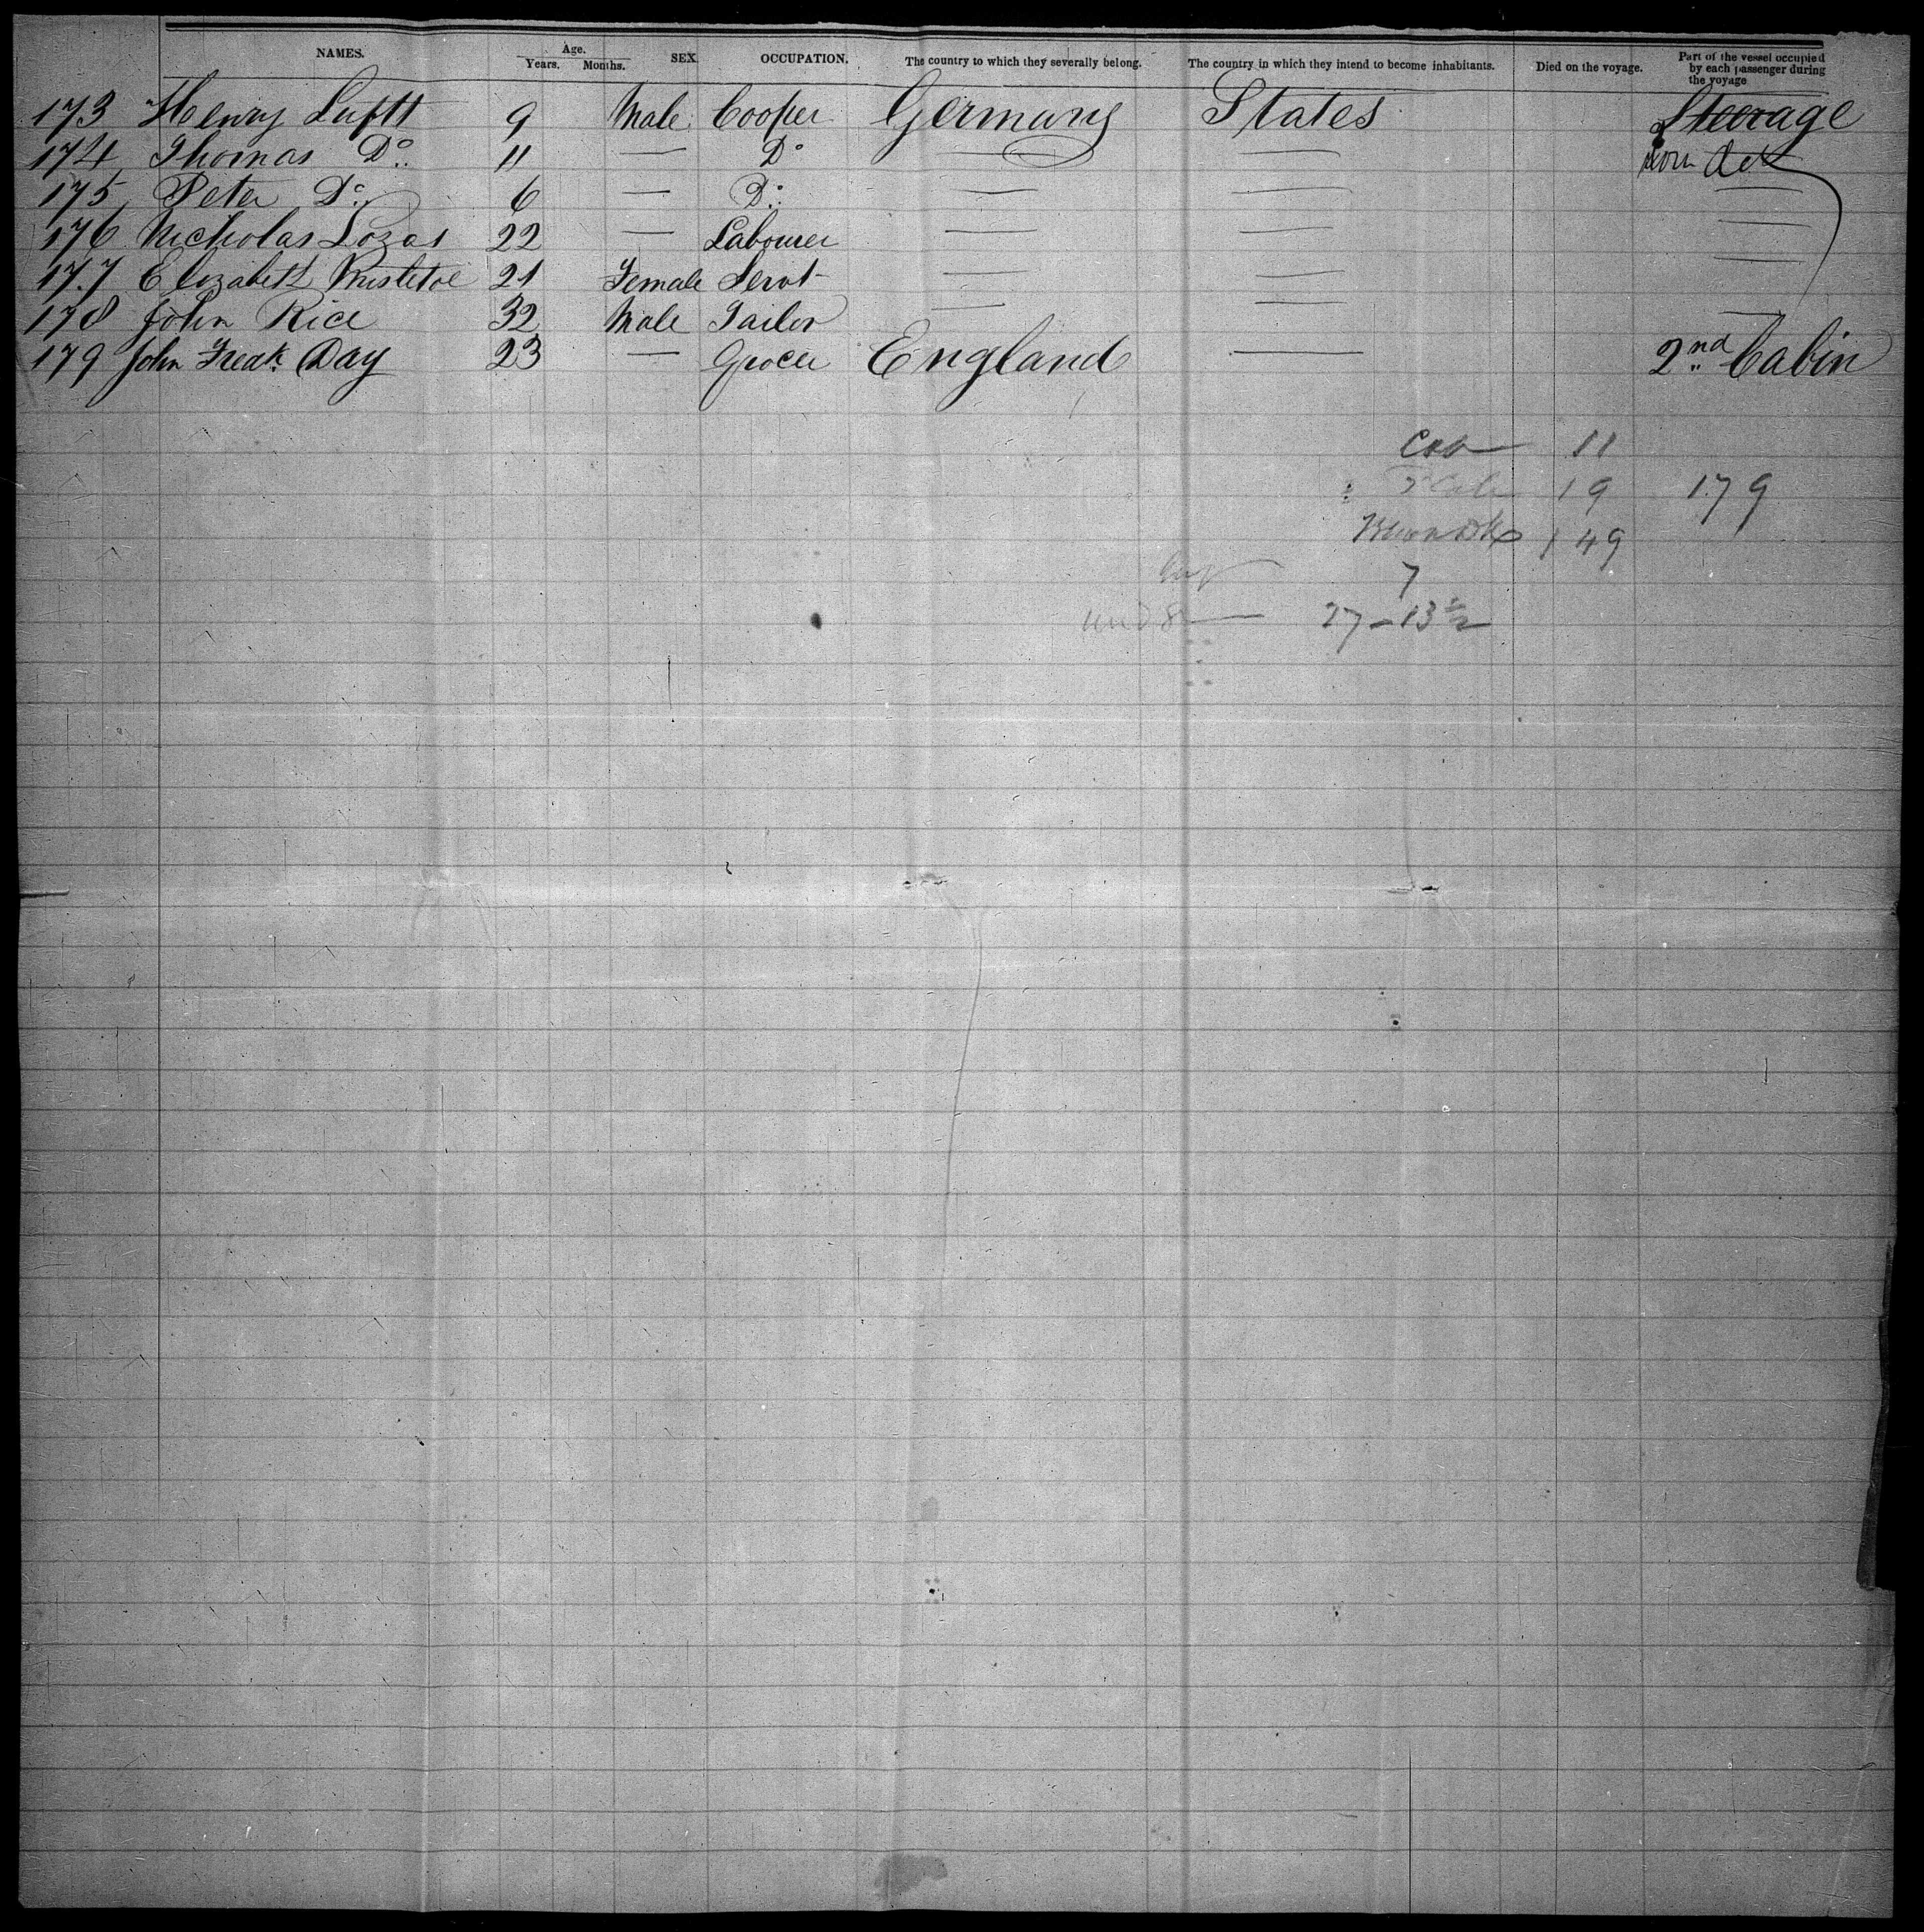 NAMES. Age. Years. Months. SEX. OCCUPATION. The country to which they severally belong. The country in which they intend to become inhabitants. Died on the voyage. Part of the vessel occupied by each passenger during the voyage
173 Henry Luftt 9 Male Cooper Germany States Steerage
174 Thomas Do 11 — Do — —
175 Peter Do 6 — Do — — —
176 Nicholas Lozas 22 — Labourer — — —
177 Elizabeth 21 Female Servt — — —
178 John Rice 32 Male Tailor — — —
179 John Fredk Day 23 — Grocer England — 2nd Cabin
Cab 11
19 179
149
7
und 8 — 27 – 13 1/2